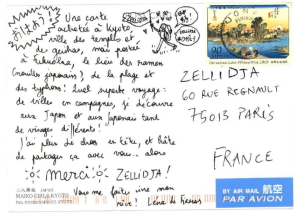 Une carte
acheté à Kyoto,
ville des temples et
de geishas, mais postée
à Fukuoka, le lieu des ramen
(nouilles japonais), de la plage et
des typhons! Quel superbe voyage:
de villes en campagnes, je découvre
aux Japon et aux Japonais tant
de visages différents!
J'ai plein de choses en tête, et hâte
de partager ça avec vous.. alors
merci ZELLIDJA!
Vous me faites une mon
rêve!
ZELLIDJA
60 RUE REGNAULT
75013 PARIS
FRANCE
MAIKO-CHI & KYOTO
BY AIR MAIL 航空
PAR AVION
90